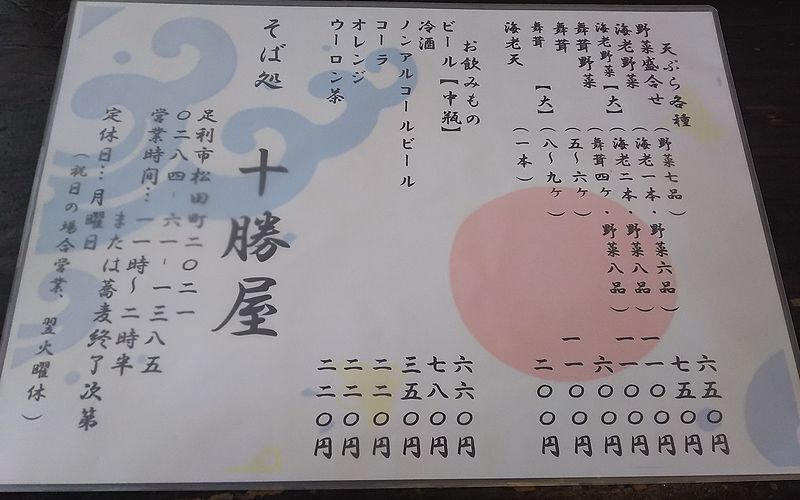 天ぷら各種
野菜盛合せ（野菜七品）六五〇円
海老野菜（海老一本・野菜六品）七五〇円
海老野菜【大】（海老二本・野菜八品）一一〇〇円
舞茸野菜（舞茸四ヶ・野菜八品）一一〇〇円
舞茸（五～六ヶ）六〇〇円
舞茸【大】（八～九ヶ）一一〇〇円
海老天（一本）二〇〇円
お飲みもの
ビール【中瓶】六六〇円
冷酒 七八〇円
ノンアルコールビール 三五〇円
コーラ 二二〇円
オレンジ 二二〇円
ウーロン茶 二二〇円
そば処 十勝屋
足利市松田町二〇二一
〇二八四-六一-一三八五
営業時間…一一時～二時半
または蕎麦終了次第
定休日…月曜日
（祝日の場合営業、翌火曜休）